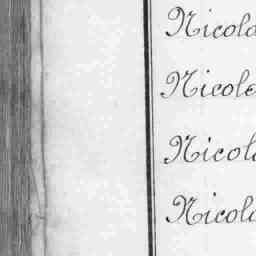 Nicola
Nicole
Nicola
Nicola